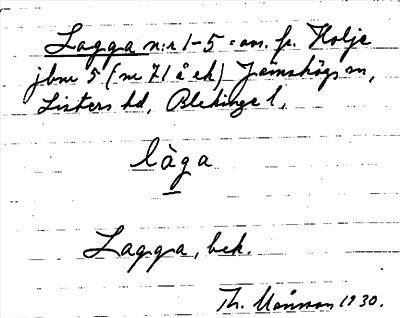 Lagga n:r 1-5 = av. fr. Holje
jbnr 5 (nr 71 å ek) Jämshögs sn,
Listers hd, Blekinge l.
làga
Lagga, bek.
Th. Månsson 1930.